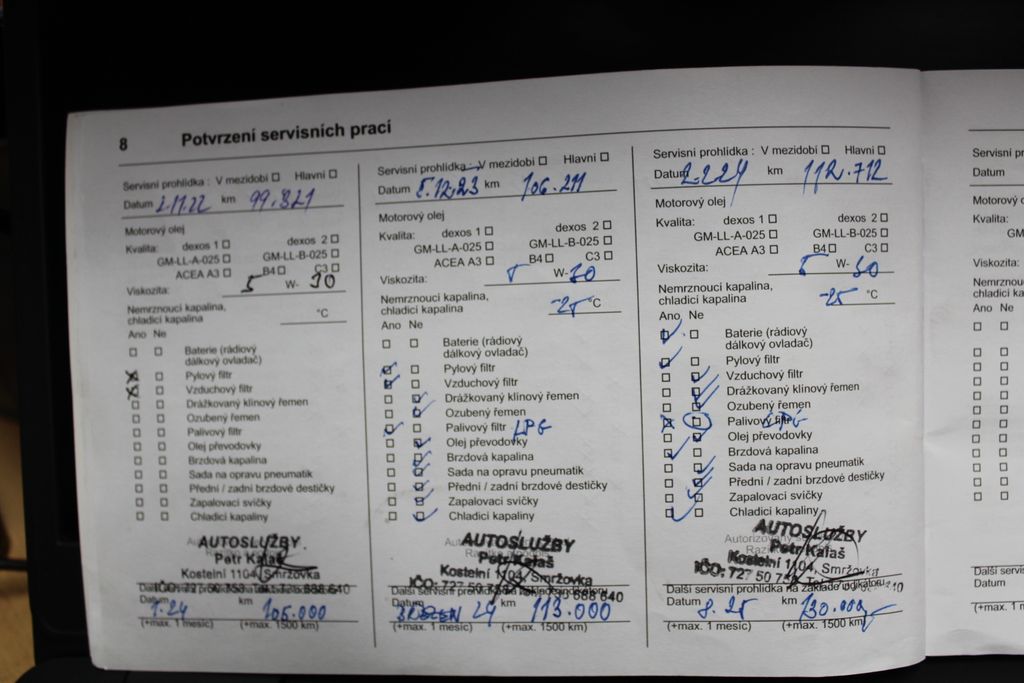 8 Potvrzení servisních prací
Servisní prohlídka : V mezidobí Hlavní
Datum 2.11.22 km 99.821
Motorový olej
Kvalita: dexos 1 dexos 2
GM-LL-A-025 GM-LL-B-025
ACEA A3 B4 C3
Viskozita: 5 W- 30
Nemrznoucí kapalina,
chladicí kapalina °C
Ano Ne
Baterie (rádiový
dálkový ovladač)
Pylový filtr
Vzduchový filtr
Drážkovaný klínový řemen
Ozubený řemen
Palivový filtr
Olej převodovky
Brzdová kapalina
Sada na opravu pneumatik
Přední / zadní brzdové destičky
Zapalovací svíčky
Chladicí kapaliny
AUTOSLUŽBY
Petr Kalaš
Kostelní 1104, Smržovka
Datum km 105.000
(+max. 1 měsíc) (+max. 1500 km)
Servisní prohlídka : V mezidobí Hlavní
Datum 5.12.23 km 106.211
Motorový olej
Kvalita: dexos 1 dexos 2
GM-LL-A-025 GM-LL-B-025
ACEA A3 B4 C3
Viskozita: 5 W- 30
Nemrznoucí kapalina,
chladicí kapalina -25 °C
Ano Ne
Baterie (rádiový
dálkový ovladač)
Pylový filtr
Vzduchový filtr
Drážkovaný klínový řemen
Ozubený řemen
Palivový filtr LPG
Olej převodovky
Brzdová kapalina
Sada na opravu pneumatik
Přední / zadní brzdové destičky
Zapalovací svíčky
Chladicí kapaliny
AUTOSLUŽBY
Petr Kalaš
Kostelní 1104, Smržovka
Datum 24 km 113.000
(+max. 1 měsíc) (+max. 1500 km)
Servisní prohlídka : V mezidobí Hlavní
Datum km 112.712
Motorový olej
Kvalita: dexos 1 dexos 2
GM-LL-A-025 GM-LL-B-025
ACEA A3 B4 C3
Viskozita: 5 W- 30
Nemrznoucí kapalina,
chladicí kapalina -25 °C
Ano Ne
Baterie (rádiový
dálkový ovladač)
Pylový filtr
Vzduchový filtr
Drážkovaný klínový řemen
Ozubený řemen
Palivový filtr LPG
Olej převodovky
Brzdová kapalina
Sada na opravu pneumatik
Přední / zadní brzdové destičky
Zapalovací svíčky
Chladicí kapaliny
AUTOSLUŽBY
Petr Kalaš
Kostelní 1104, Smržovka
Další servisní prohlídka na základě indikátoru
Datum 8. 25 km 130.000
(+max. 1 měsíc) (+max. 1500 km)
Servisní
Datum
Motorový
Kvalita:
Viskozita:
Nemrznoucí
chladicí
Ano Ne
Další servisní
Datum
(+max. 1